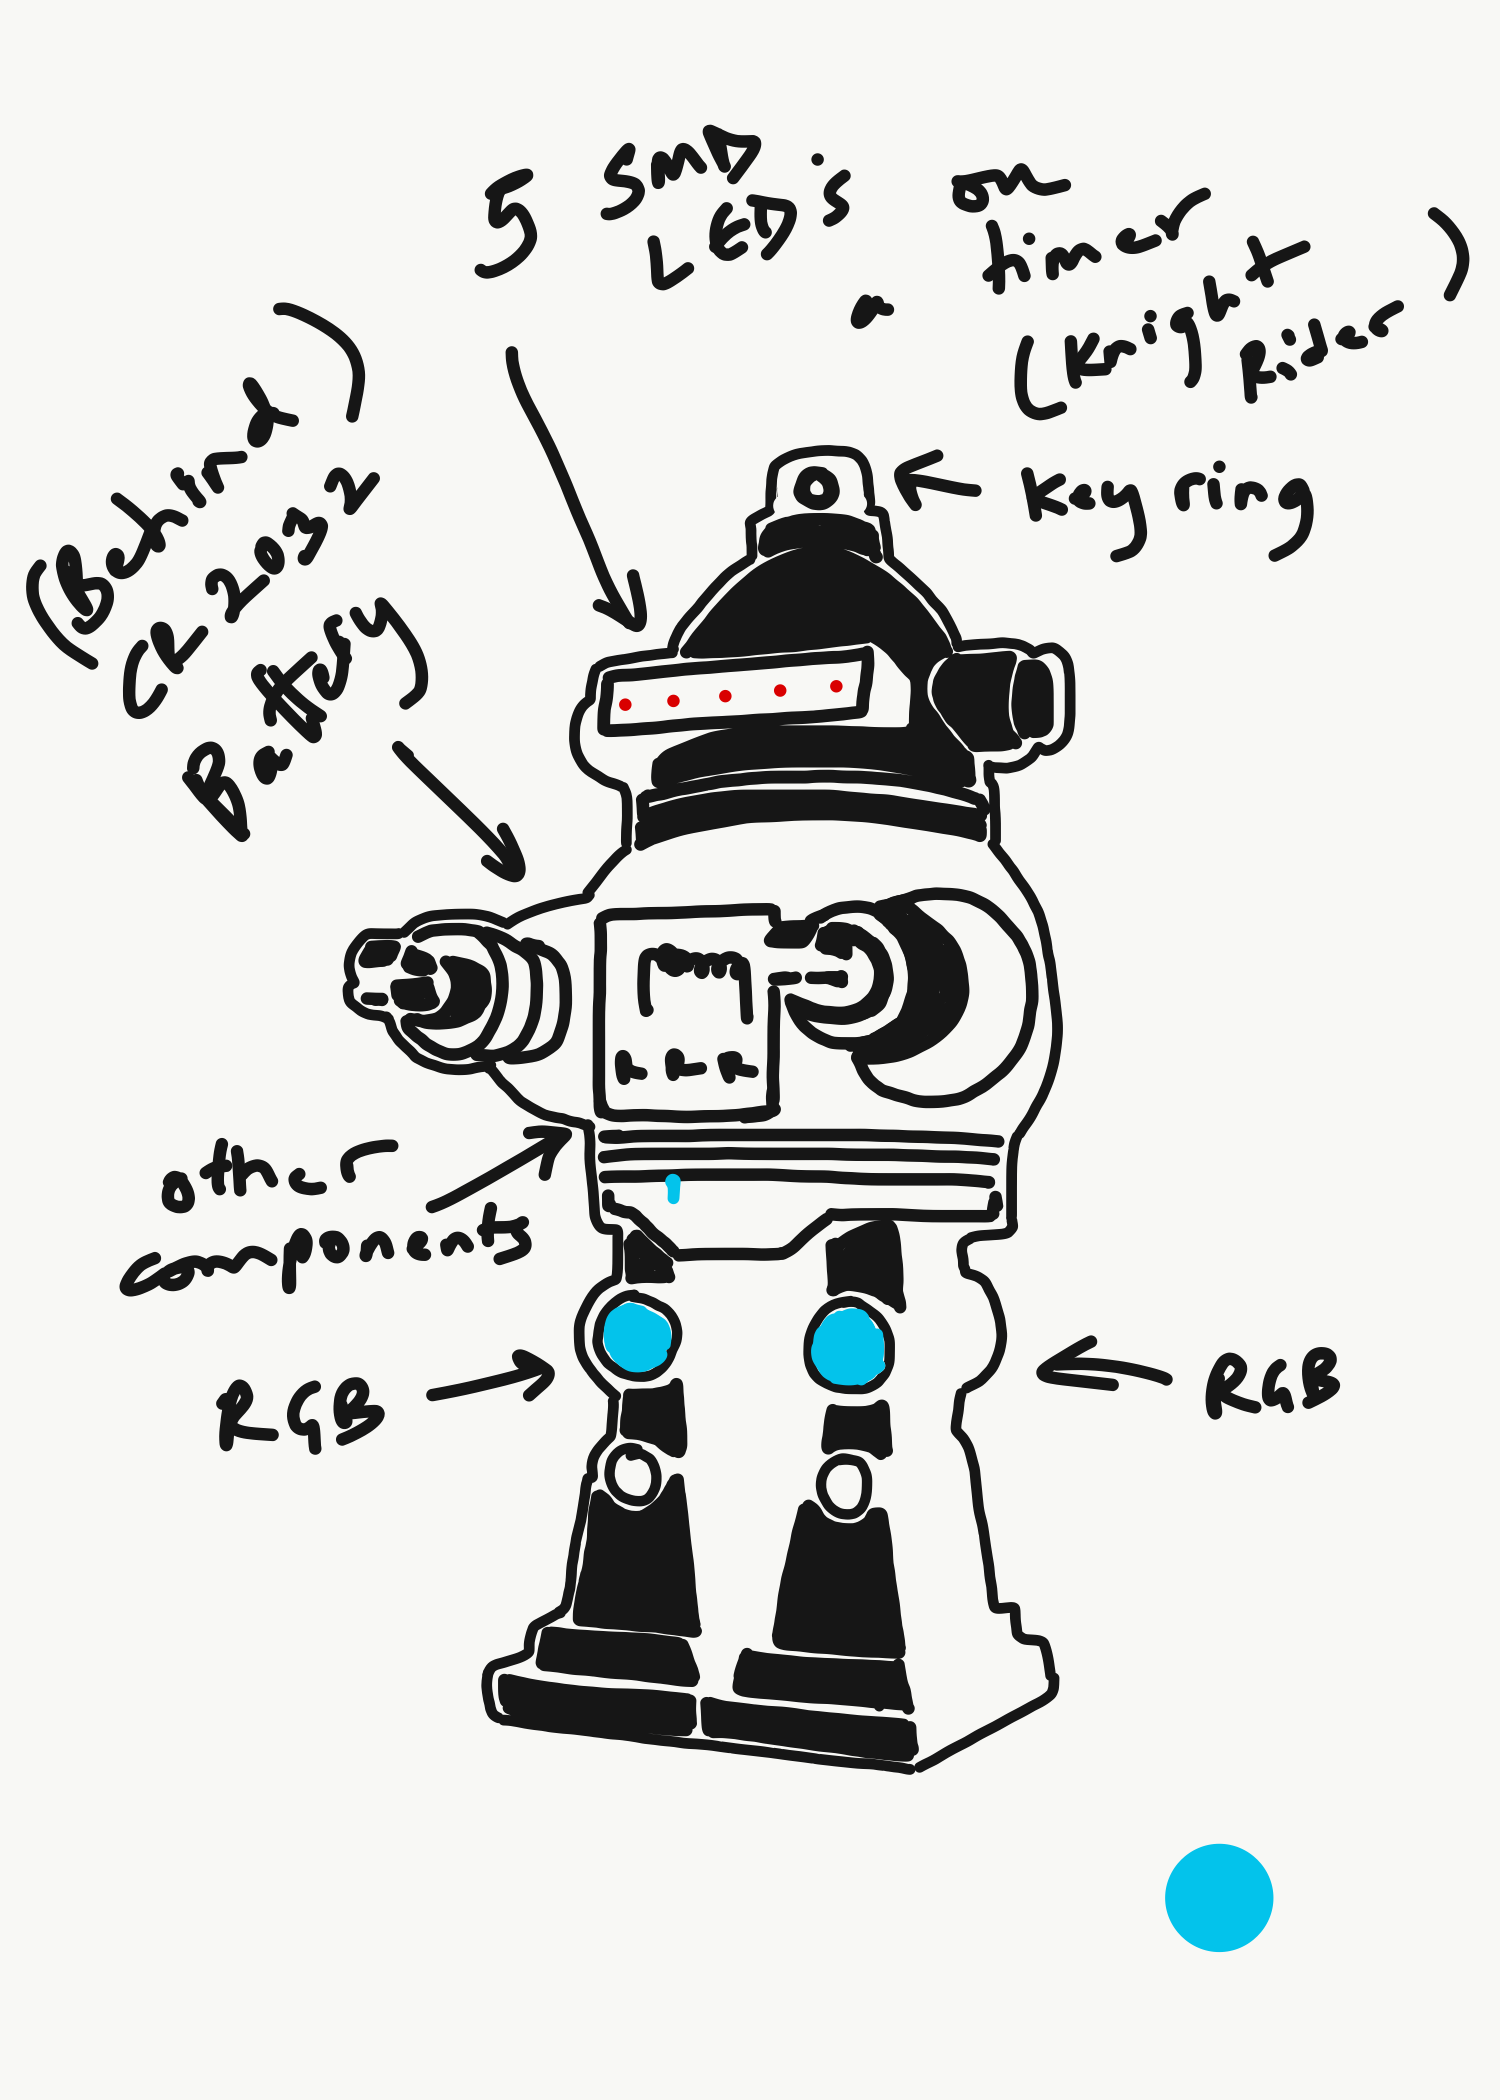 5 SMD
LED's on
a timer
(Knight
Rider)
(Behind)
CR2032
Battery
Key ring
other
components
RGB
RGB